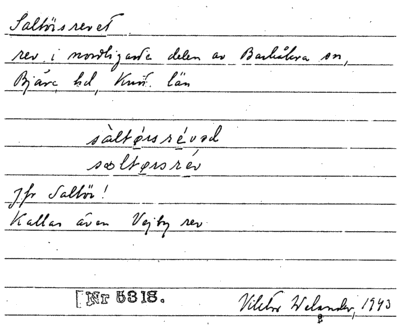 Saltörsrevet
rev i nordligaste delen av Barkåkra sn,
Bjäre hd, Krist. län
sàltørsrévəd
sæltørsrév
Jfr Saltör!
Kallas även Vejby rev
[Nr 5318.
Viktor Welander, 1943